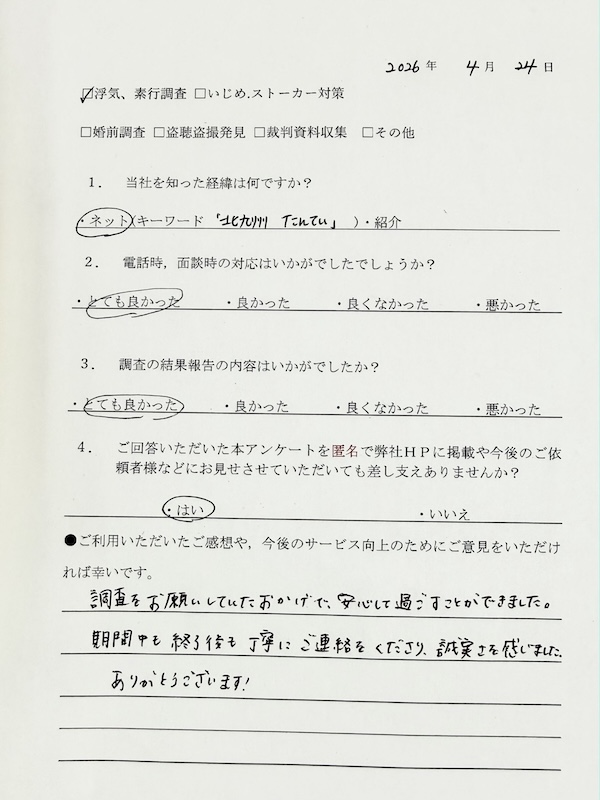 2026年 4月 24日
☑浮気、素行調査 □いじめ.ストーカー対策
□婚前調査 □盗聴盗撮発見 □裁判資料収集 □その他
1. 当社を知った経緯は何ですか？
・ネット(キーワード「北九州 たんてい」)・紹介
2. 電話時，面談時の対応はいかがでしたでしょうか？
・とても良かった ・良かった ・良くなかった ・悪かった
3. 調査の結果報告の内容はいかがでしたか？
・とても良かった ・良かった ・良くなかった ・悪かった
4. ご回答いただいた本アンケートを匿名で弊社ＨＰに掲載や今後のご依
頼者様などにお見せさせていただいても差し支えありませんか？
・はい ・いいえ
●ご利用いただいたご感想や，今後のサービス向上のためにご意見をいただけ
れば幸いです。
調査をお願いしていたおかげで、安心して過ごすことができました。
期間中も終了後も丁寧にご連絡をくださり、誠実さを感じました。
ありがとうございます!